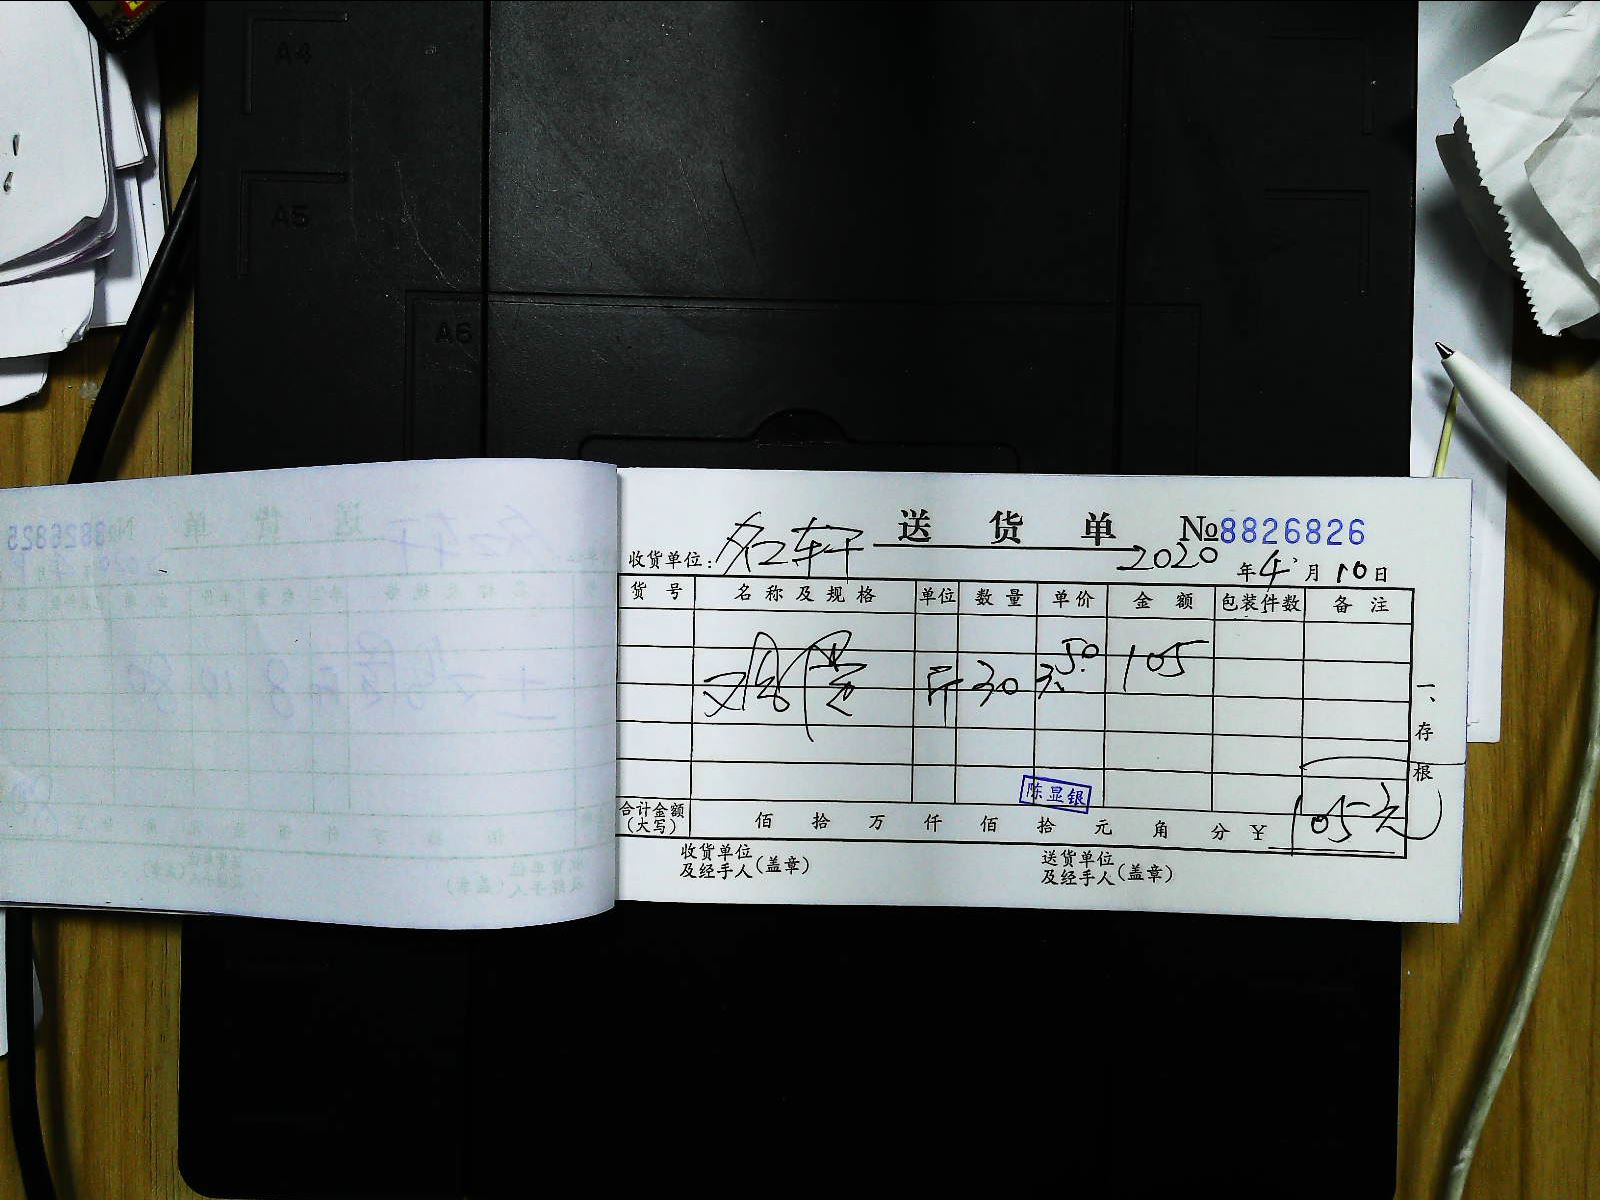 A4
A5
A6
送 货 单 №8826826
收货单位: 名轩 2020 年 4 月 10 日
货 号 名 称 及 规 格 单位 数 量 单 价 金 额 包装件数 备 注
斤 30 3.50 105
一、存根
陈显银
合计金额(大写) 佰 拾 万 仟 佰 拾 元 角 分 ¥ 105元
收货单位及经手人(盖章) 送货单位及经手人(盖章)